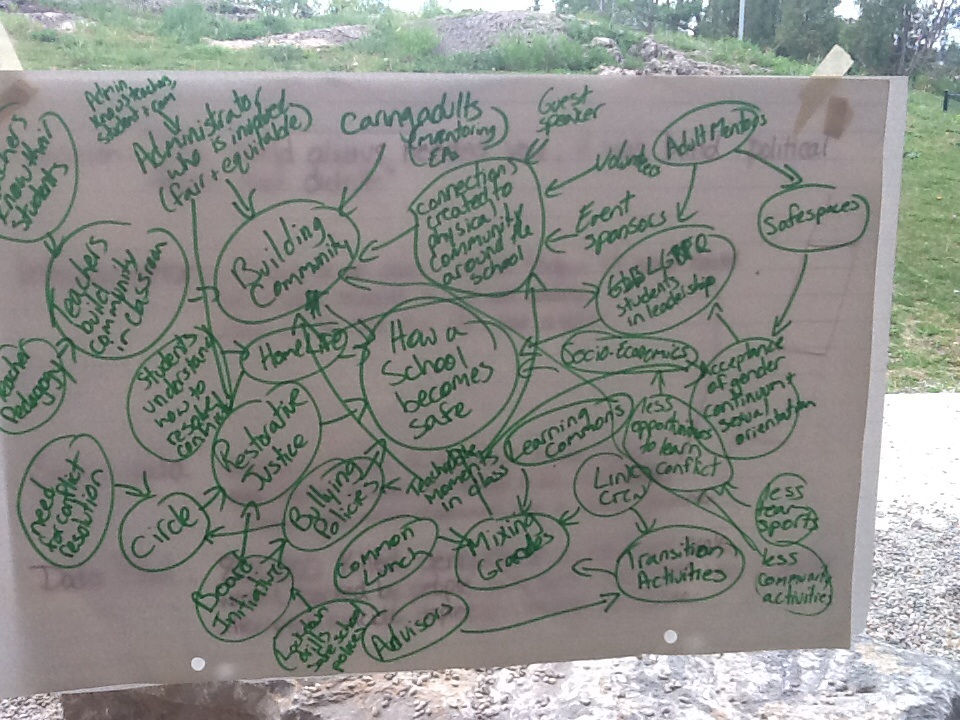 Admin
know teachers
Administrator
who is involved
(fair + equitable)
caring adults
(mentoring)
(EAs)
Guest
Speaker
Volunteers
Adult Mentors
Safe spaces
Event
sponsors
connections
created to
physical
community
around the
school
Building
Community
know their
students
teachers
build
community
in classroom
Pedagogy
students
understand
how to
resolve
conflict
Home Life
How a
school
becomes
safe
students
in leadership
Socio-Economics
acceptance
of gender
continuum +
sexual
orientation
less
opportunities
to learn
conflict
Learning
Commons
Restorative
Justice
Bullying
Policies
Teachable
Moments
in class
Link
Crew
less
team
sports
less
community
activities
need
for conflict
resolution
Circle
Common
Lunch
Mixing
Grades
Transition
Activities
Board
Initiatives
Lockdown
drills
safe school
policies
Advisors